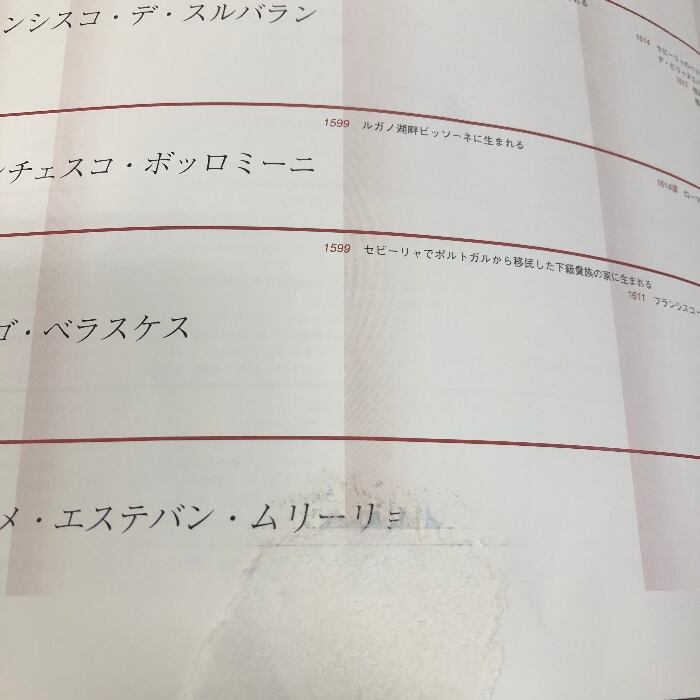 ンシスコ・デ・スルバラン
れる
1614 セビーリャの
1617
1599 ルガノ湖畔ビッソーネに生まれる
チェスコ・ボッロミーニ
1614頃 ローマ
1599 セビーリャでポルトガルから移民した下級貴族の家に生まれる
1611 フランシスコ・
ゴ・ベラスケス
メ・エステバン・ムリーリョ